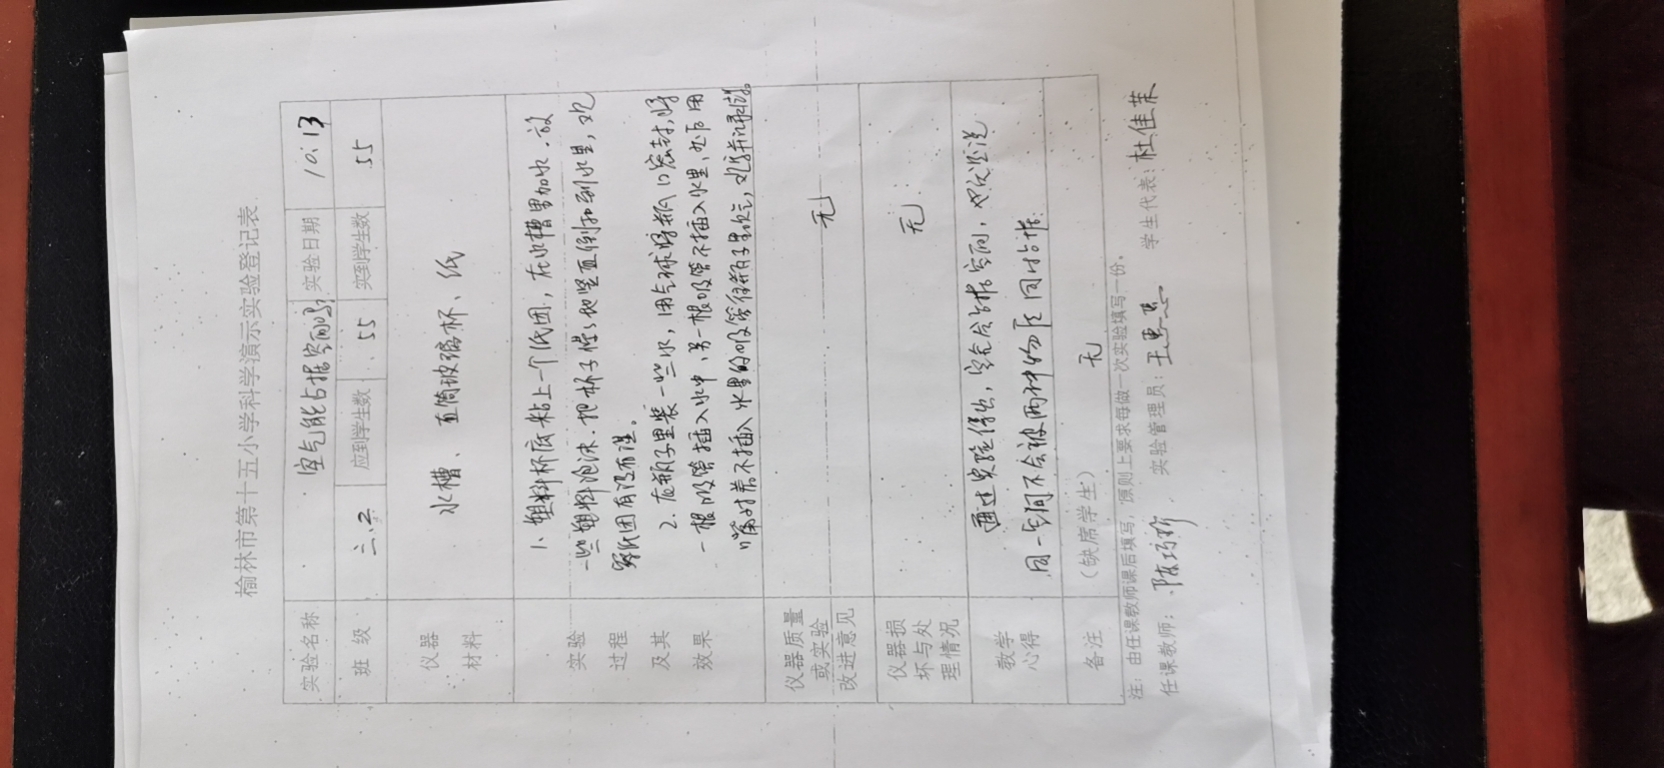 榆林市第十五小学科学演示实验登记表
实验名称 空气能占据空间吗 实验日期 10.13
班 级 三.2 应到学生数 55 实到学生数 55
仪器
材料
水槽、直筒玻璃杯、纸
实验
过程
及其
效果
1、塑料杯底粘上一个纸团，在水槽里加水．放
一些塑料泡沫．把杯子慢慢地竖直倒扣到水里，观
察纸团有没有湿。
2．在瓶子里装一些水，用气球将瓶口密封，将
一根吸管插入水中、另一根吸管不插入水里，
嘴对着不插入水里的吸管往瓶子里吹气，观察并记录
仪器质量
或实验
改进意见
无
仪器损
坏与处
理情况
无
教学
心得
通过实验得出，空气会占据空间，
同一空间不会被两种物质同时占据
备注
（缺席学生） 无
注：由任课教师课后填写，原则上要求每做一次实验填写一份。
任课教师： 陈巧 实验管理员：王 学生代表：杜佳